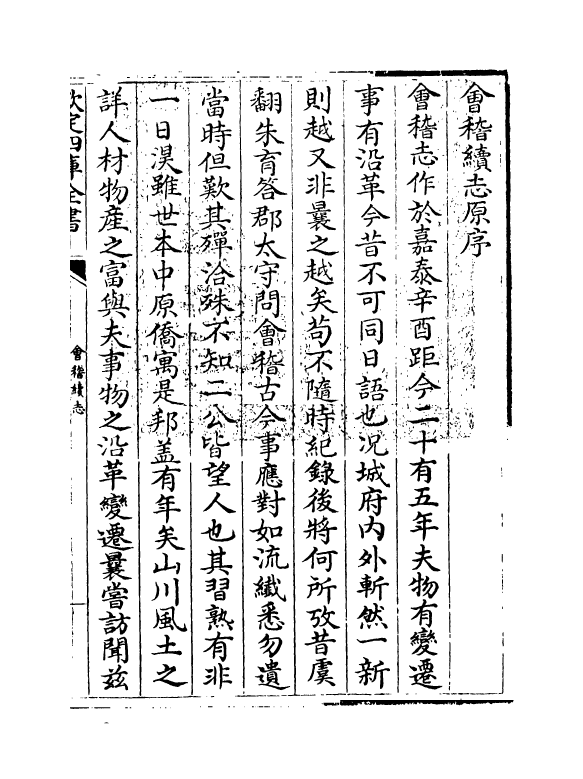 會稽續志原序
會稽志作於嘉泰辛酉距今二十有五年夫物有變遷
事有沿革今昔不可同日語也况城府内外斬然一新
則越又非曩之越矣苟不隨時紀錄後將何所攷昔虞
翻朱育答郡太守問會稽古今事應對如流纎悉勿遺
當時但歎其殫洽殊不知二公皆望人也其習熟有非
一日淏雖世本中原僑寓是邦盖有年矣山川風土之
詳人材物産之富與夫事物之沿革變遷曩嘗訪聞兹
欽定四庫全書
會稽續志